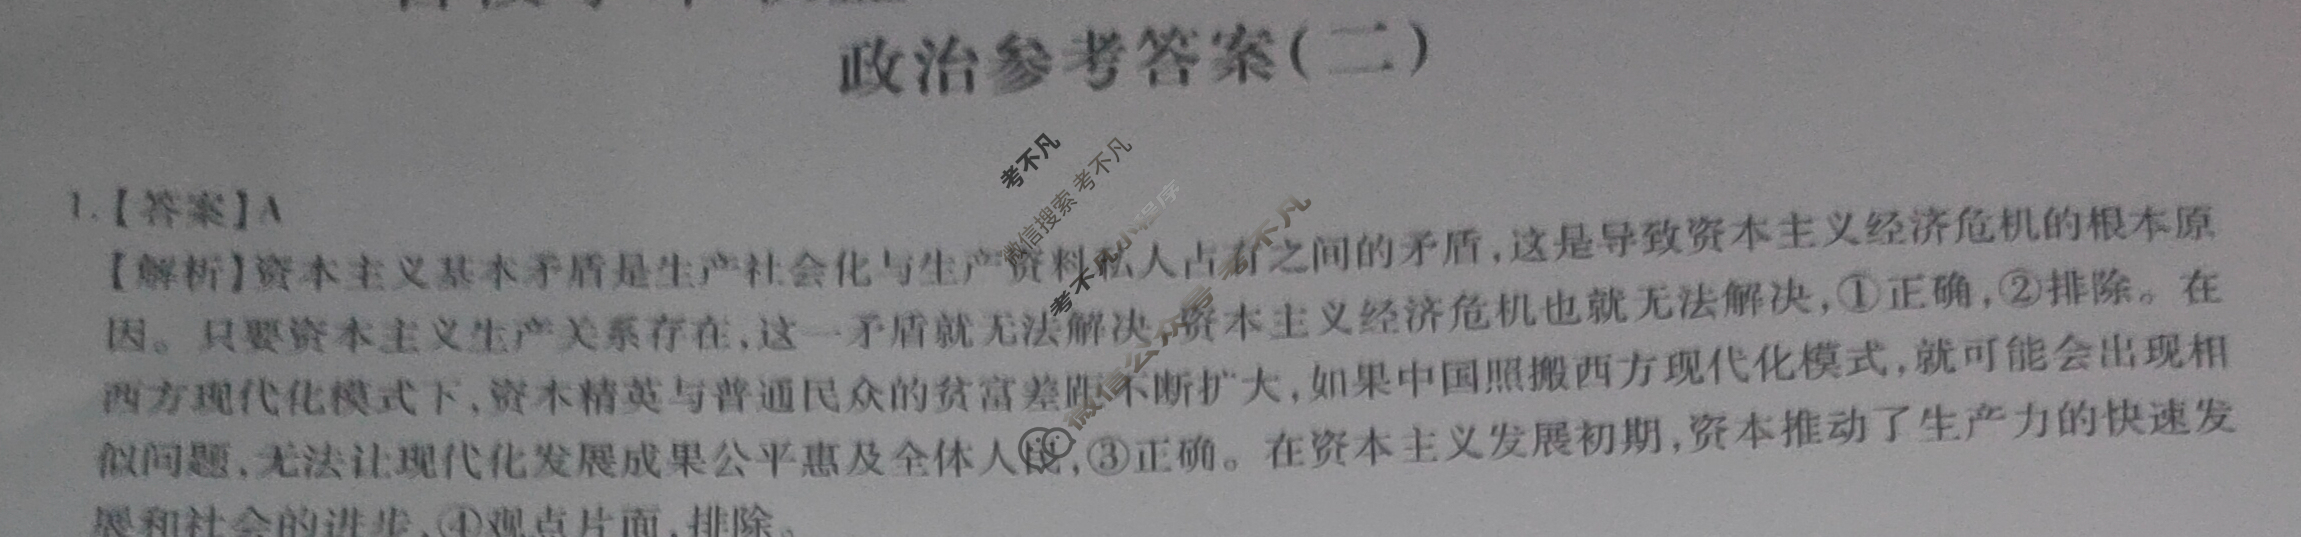 政治参考答案(二)
1.【答案】A
【解析】资本主义基本矛盾是生产社会化与生产资料私人占有之间的矛盾,这是导致资本主义经济危机的根本原
因。只要资本主义生产关系存在,这一矛盾就无法解决,资本主义经济危机也就无法解决,①正确,②排除。在
西方现代化模式下,资本精英与普通民众的贫富差距不断扩大,如果中国照搬西方现代化模式,就可能会出现相
似问题,无法让现代化发展成果公平惠及全体人民,③正确。在资本主义发展初期,资本推动了生产力的快速发
展和社会的进步,④观点片面,排除。
考不凡
微信搜索 考不凡
考不凡小程序
微信公众号
不凡